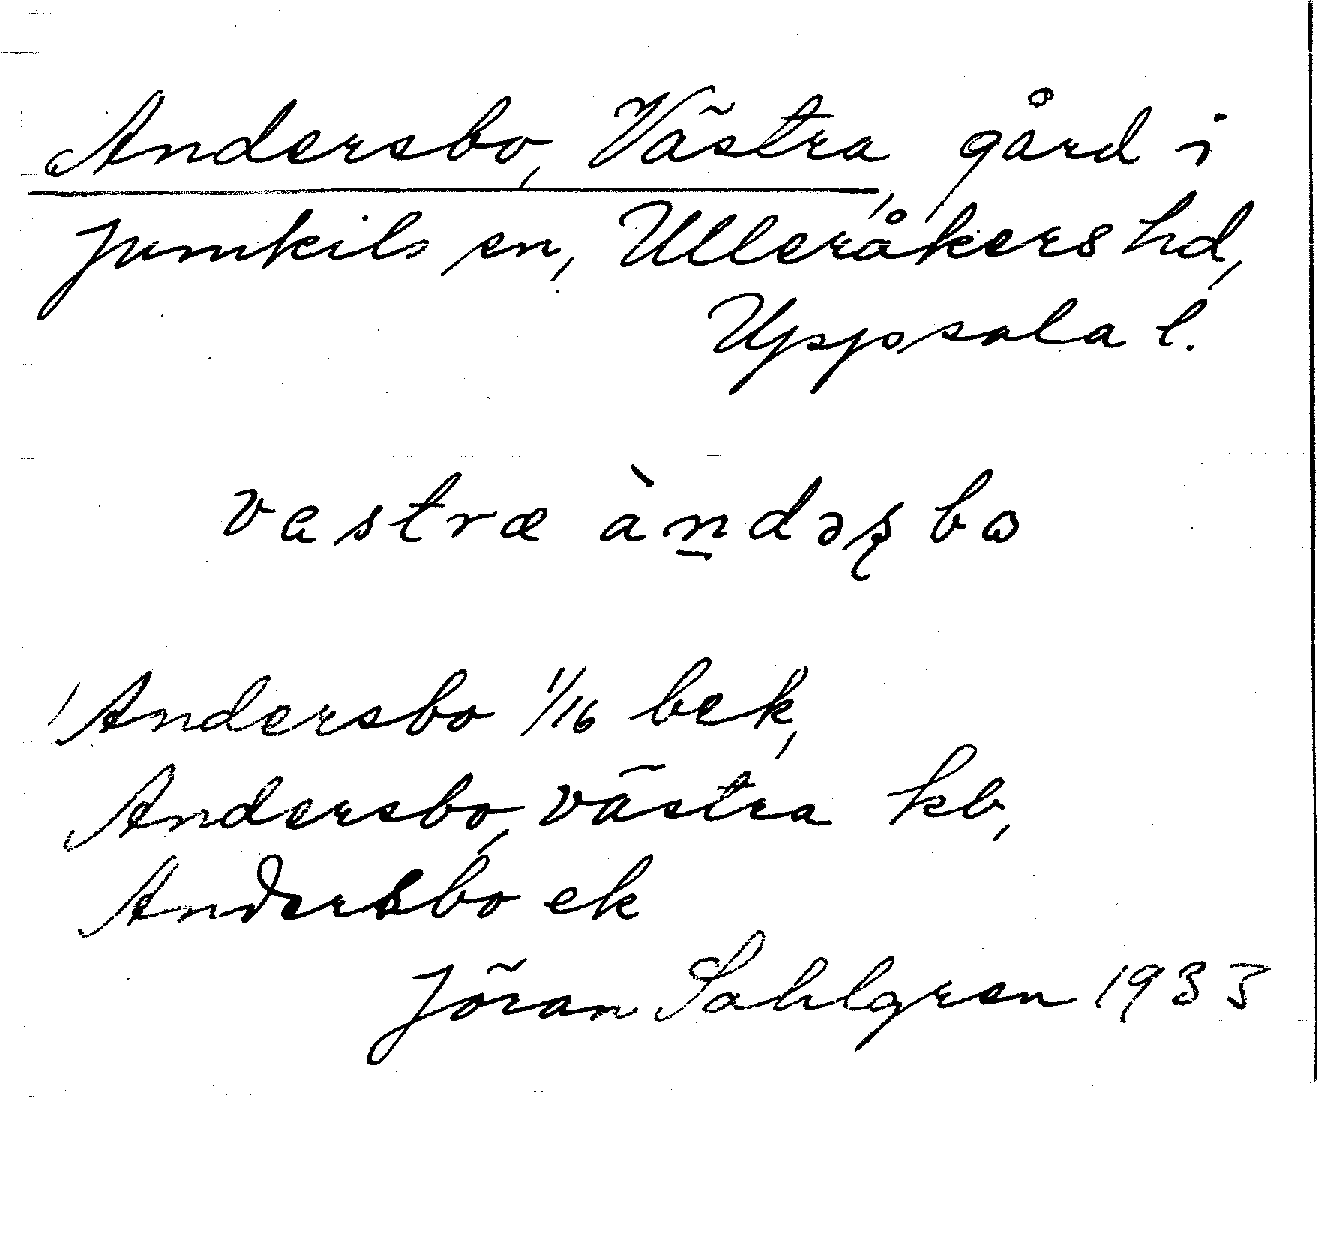 Andersbo, Västra, gård i
Jumkils sn, Ulleråkers hd,
Uppsala l.
vestræ àn̲dəʂbo
Andersbo 1/16 bek,
Andersbo, västra kb,
Andersbo ek
Jöran Sahlgren 1933